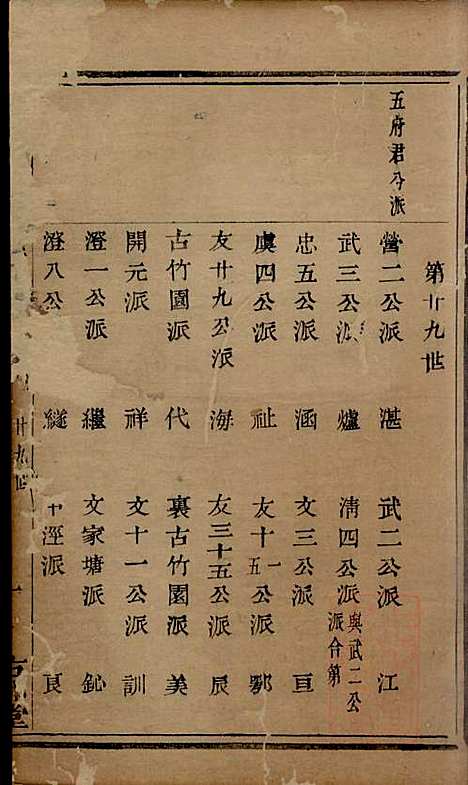 五府君分派
第廿九世
營二公派 湛 武二公派 江
武三公派 爐 清四公派 與武二公派合第
忠五公派 涵 文三公派 亘
虞四公派 祉 友十一五公派 鄂
友廿九公派 海 友三十五公派 辰
古竹園派 代 裏古竹園派 美
開元派 祥 文十一公派 訓
澄一公派 繼 文家塘派
澄八公 繸 涇派 良
廿九世
堂